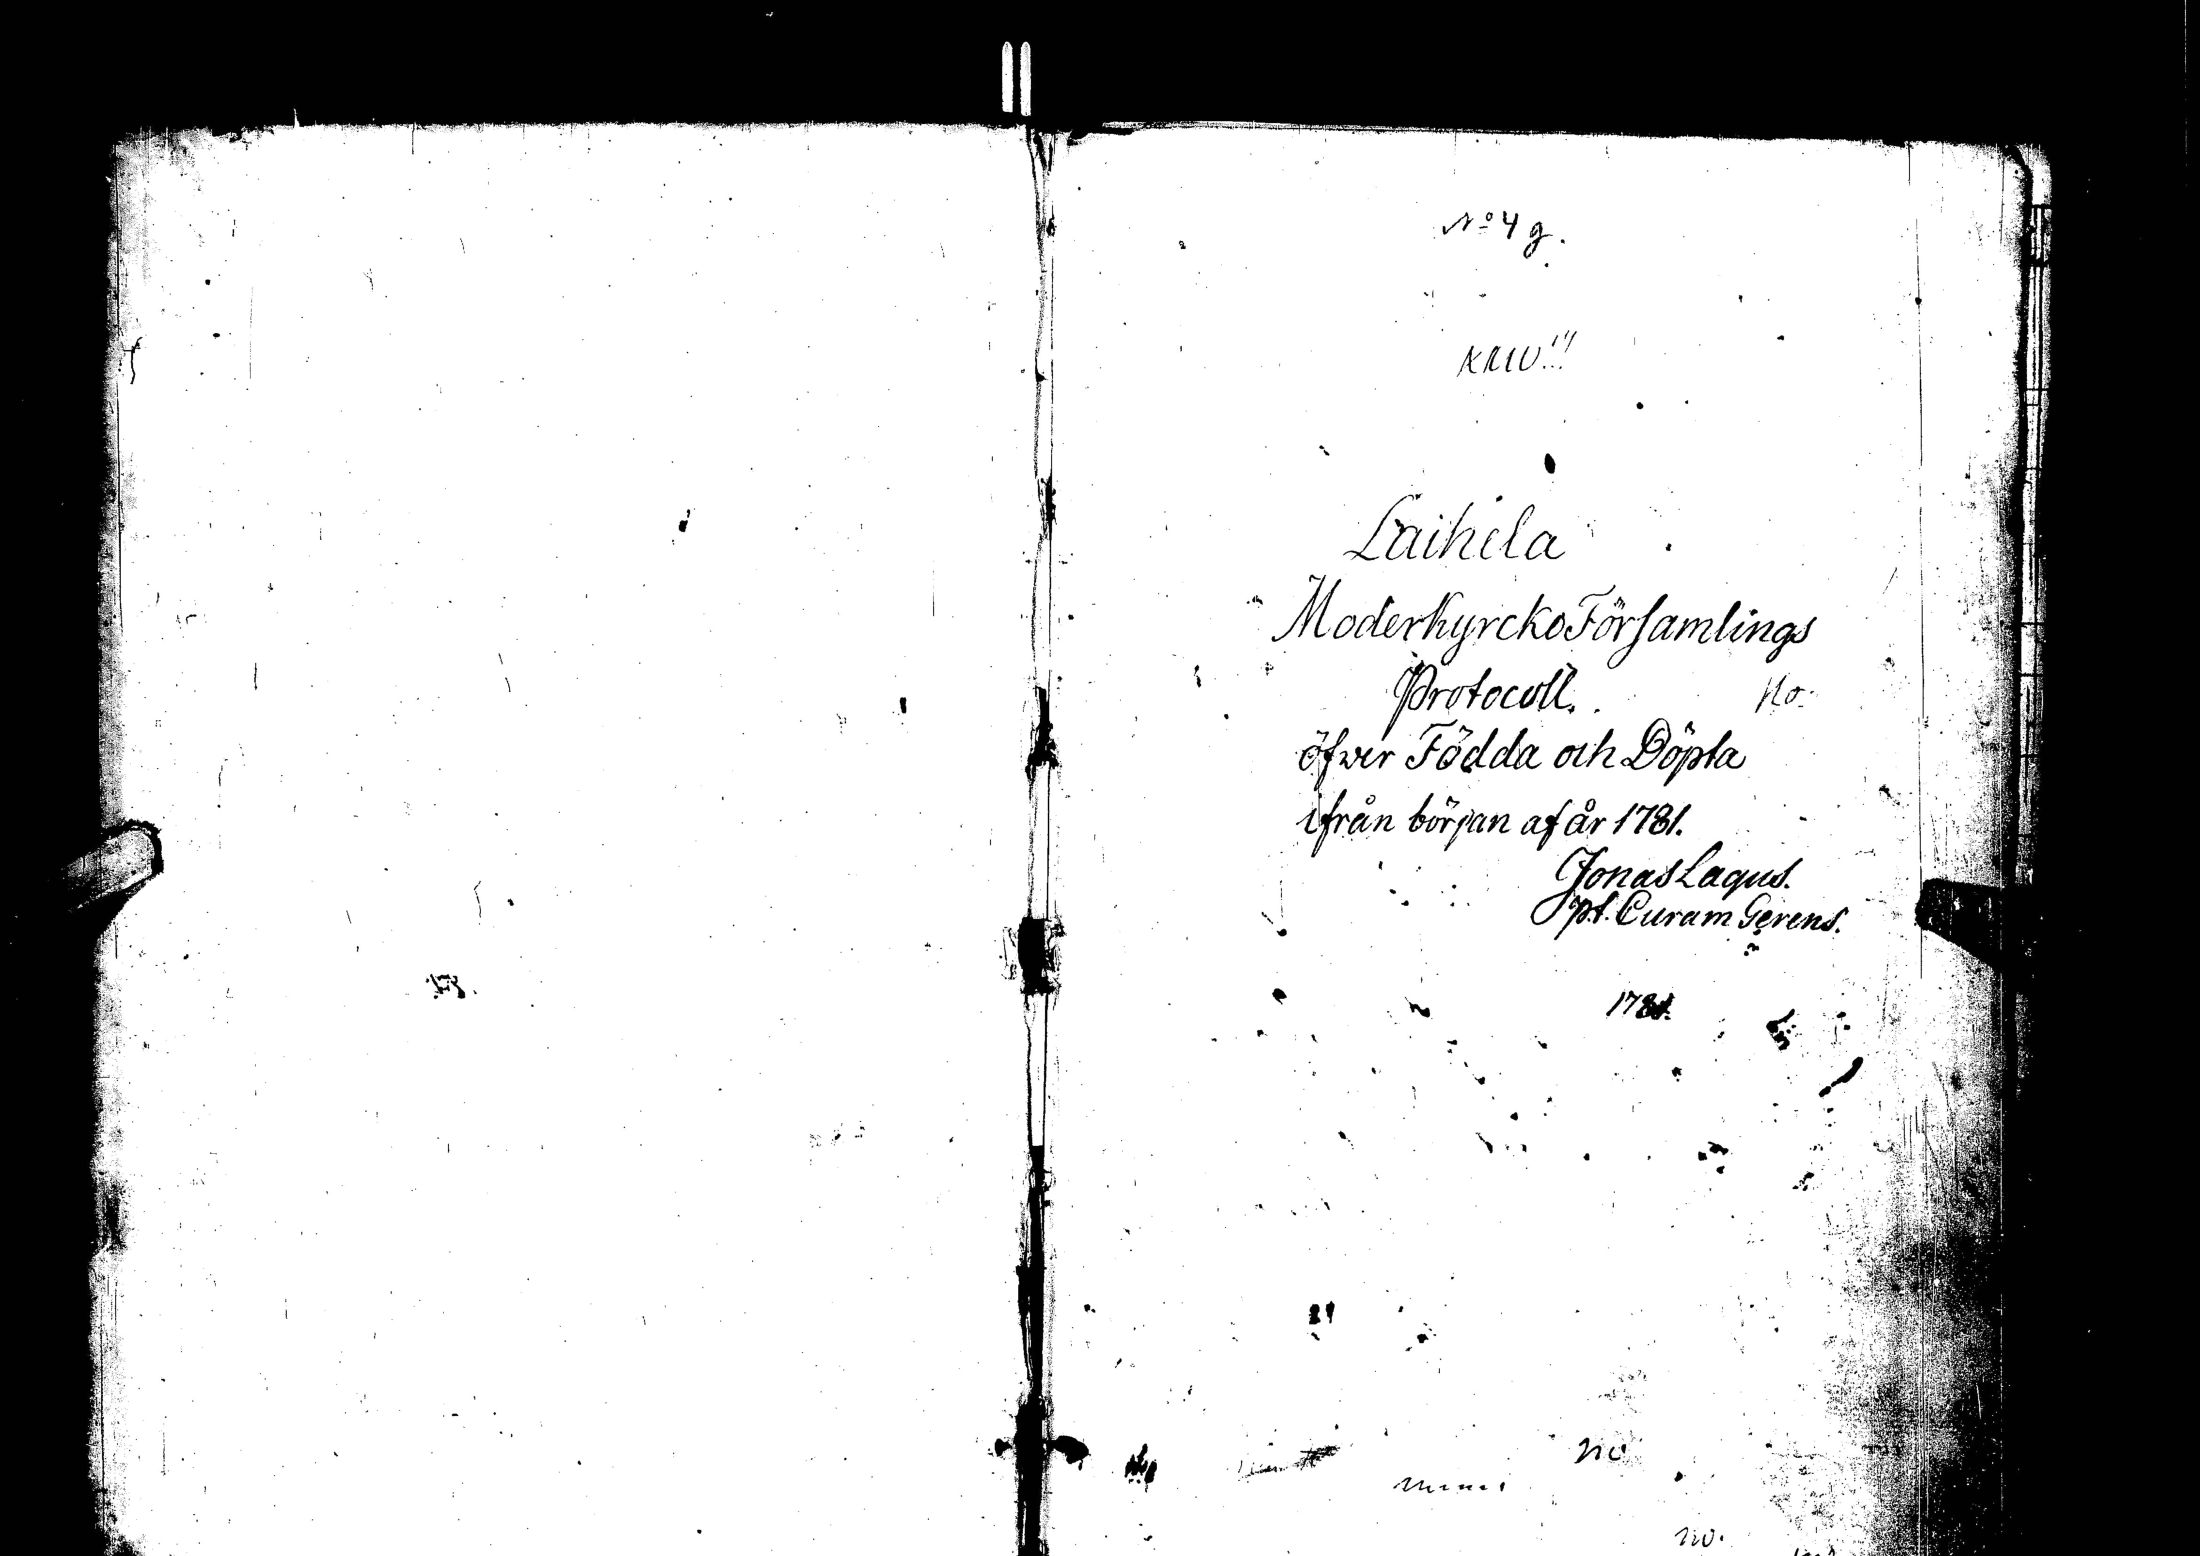 No 4 g.
Laihela
Moderkyrcko Församlings
Protocoll.
No.
öfwer Födda och Döpta
ifrån början af år 1781.
Jonas Lagus.
pt. Curam Gerens.
1781.
no
no.